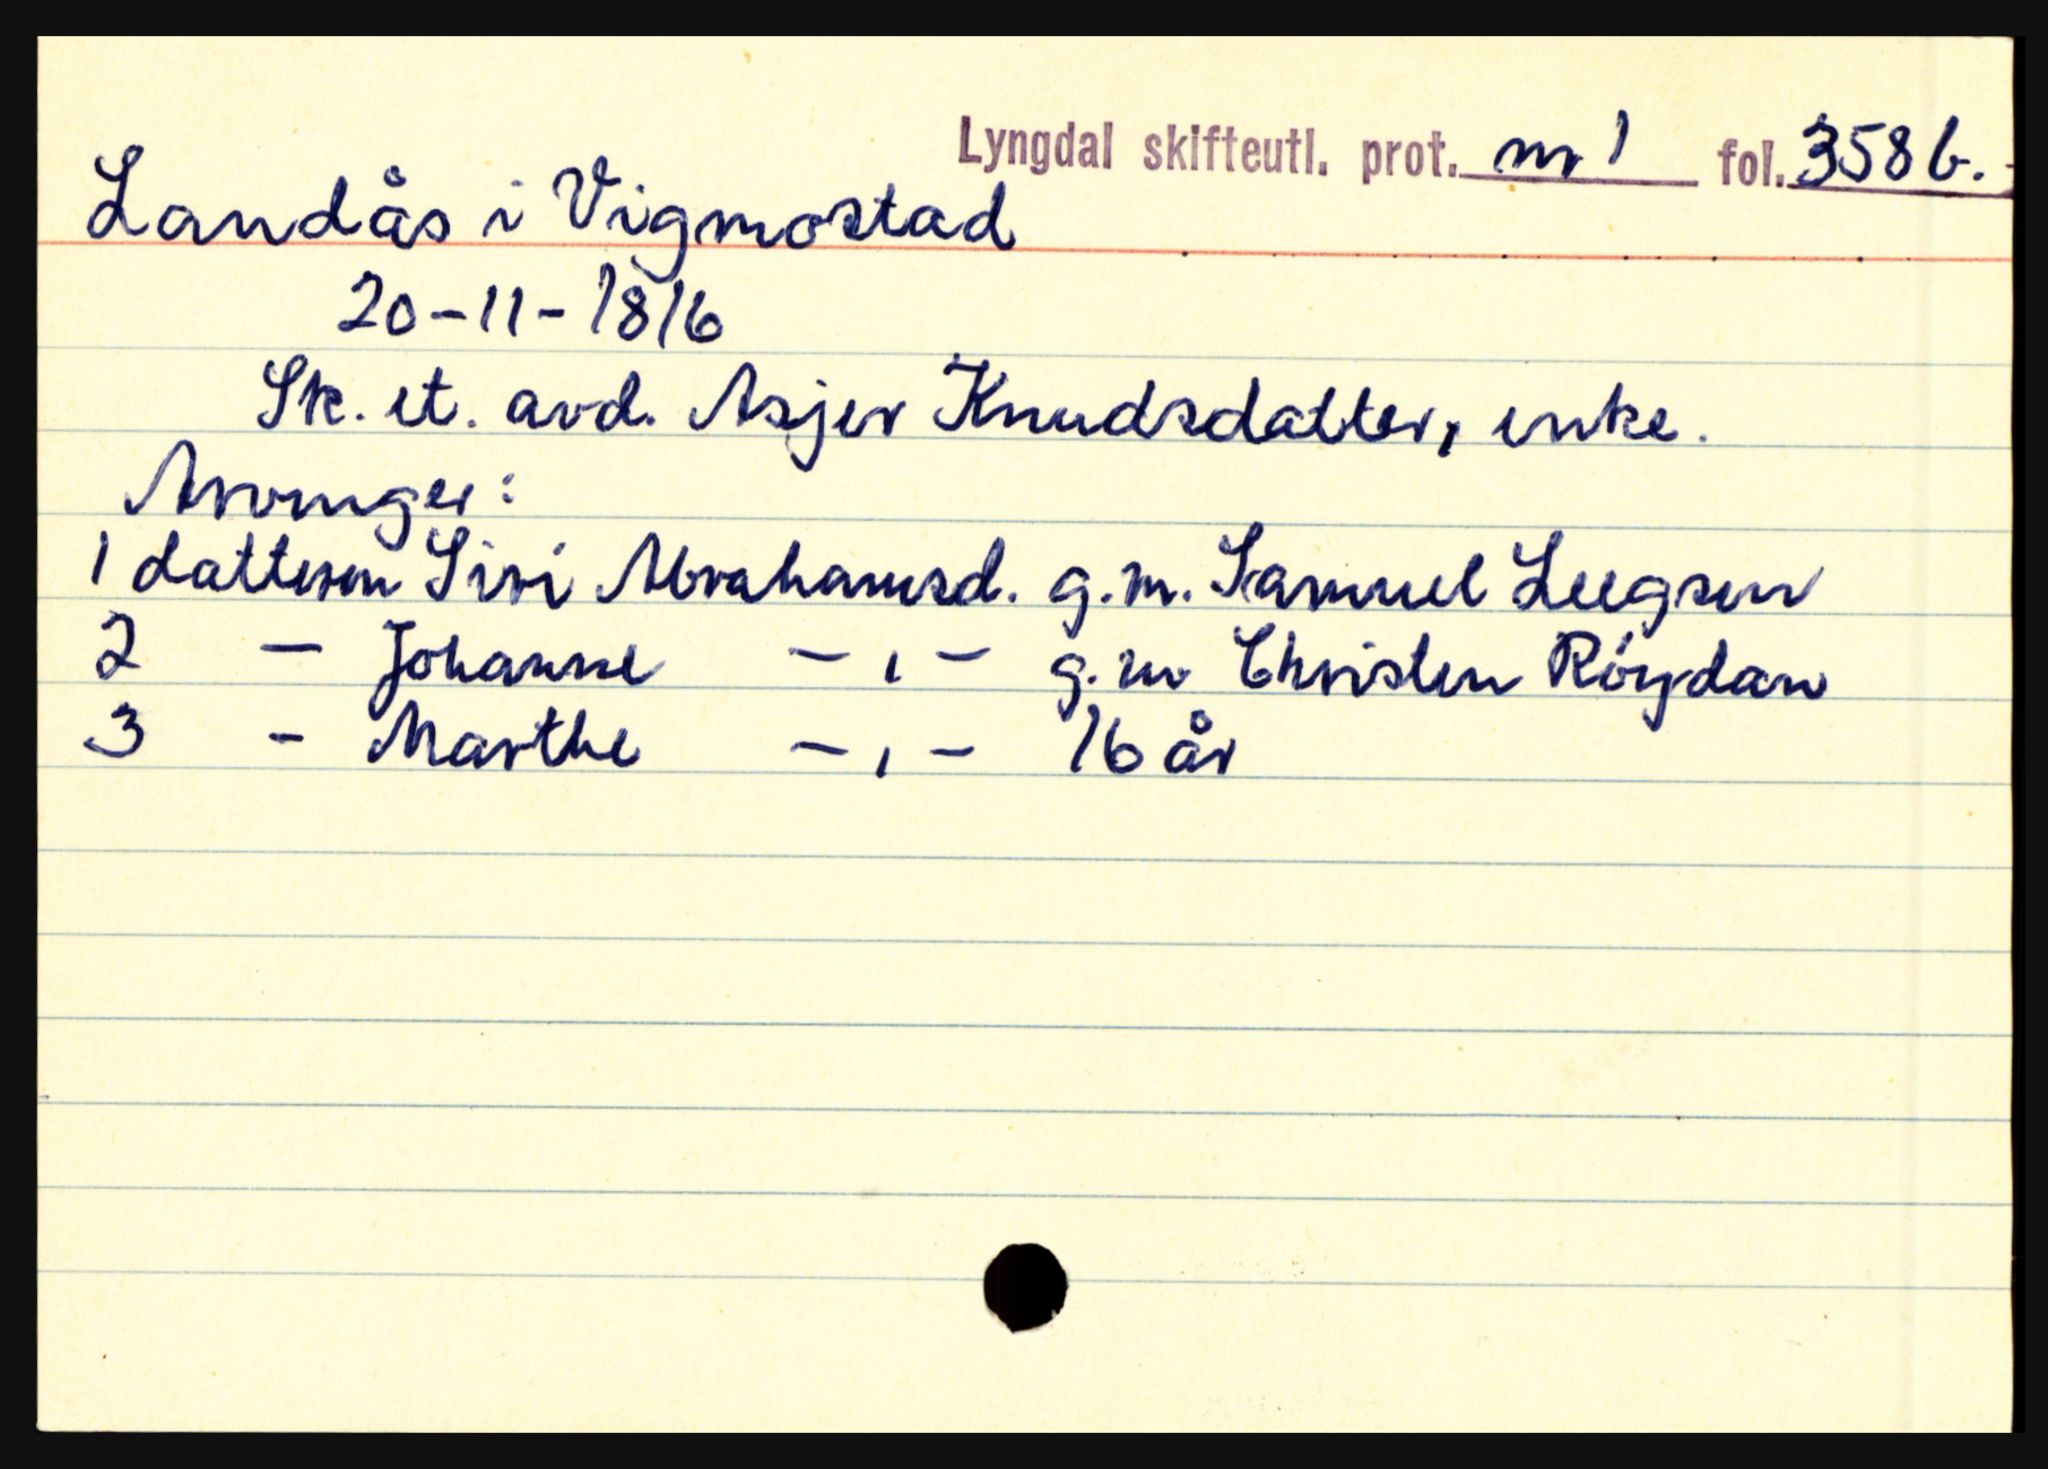 Lyngdal skifteutl. prot. nr 1 fol. 358 b.
Landås i Vigmostad
20-11-1816
Sk. et. avd. Asjer Knudsdatter, enke.
Arvinger:
1 datteren Siri Abrahamsd. g.m. Samuel Leegsen
2 - Johanne -,- g.m Christen Röydan
3 - Marthe -,- 16 år